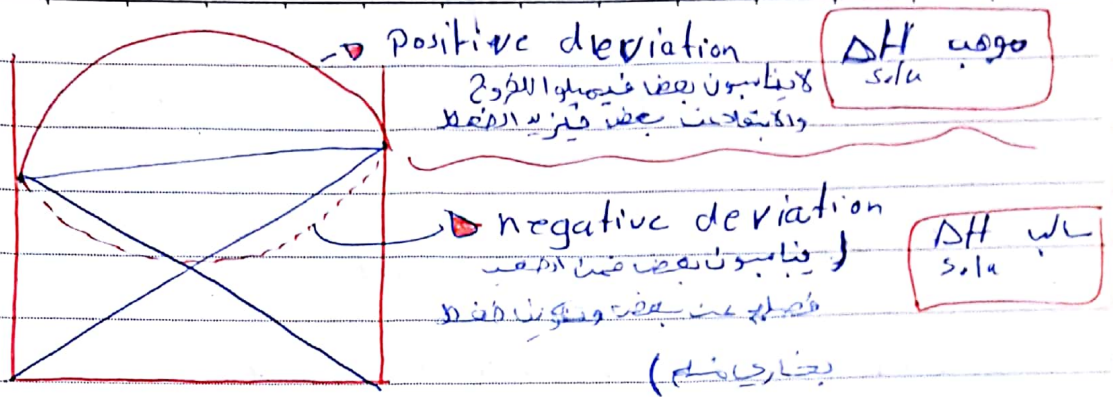 positive deviation
ΔH soln موجب
لا يناسبون بعض فيميلوا للخروج
والابتعاد عن بعض فيزيد الضغط
negative deviation
ΔH soln سالب
(يناسبون بعض فمن الصعب
فصلهم عن بعض وتكوين ضغط
بخاري)